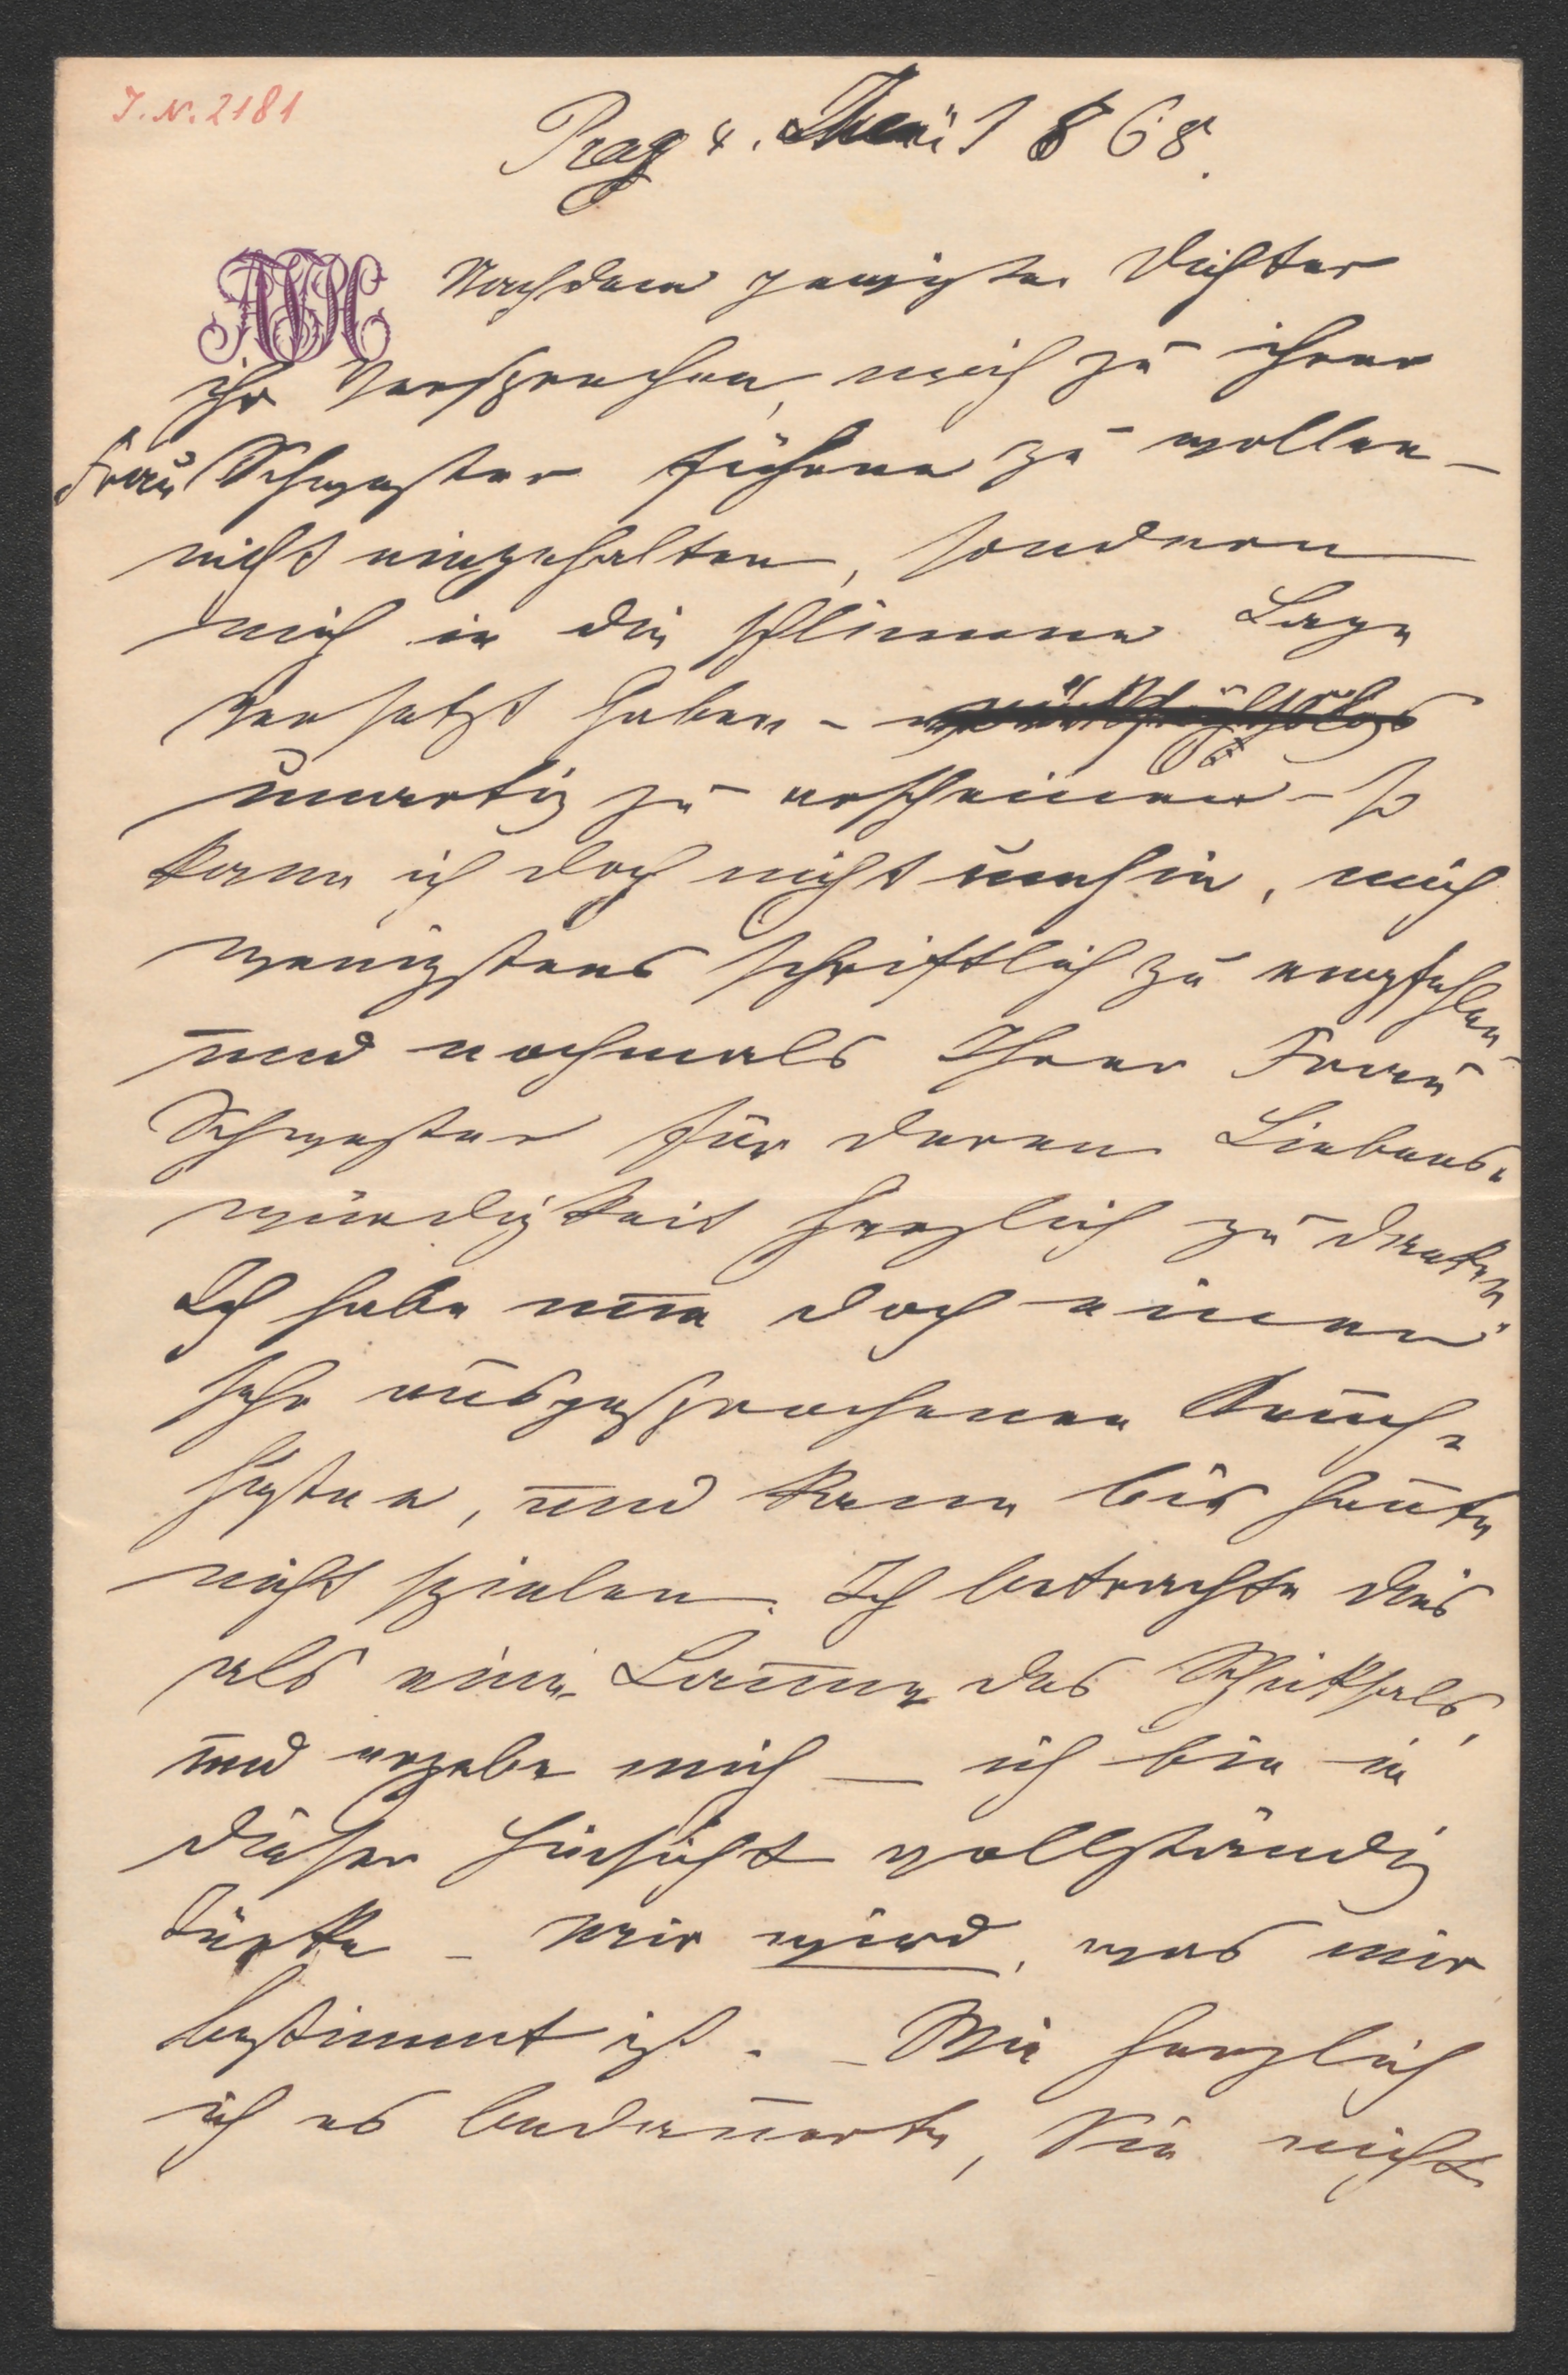 J. N. 2181
Prag 4. Juni 1868.
Nachdem gewisse Dichter
ihr Versprechen, mich zu ihrer
Frau Schwester führen zu wollen –
nicht eingehalten, sondern
mich in die schlimme Lage
versetzt haben –
unartig zu erscheinen – so
kann ich doch nicht umhin, mich
wenigstens schriftlich zu empfehlen –
und nochmals Ihrer Frau
Schwester für deren Liebens-
würdigkeit herzlich zu danken.
Ich habe nun doch einen
sehr ausgesprochenen Keuch-
husten, und kann bis heute
nicht spielen. Ich betrachte dies
als eine Laune des Schiksals,
und ergebe mich — ich bin in
dieser Hinsicht vollständig
Türke – mir wird, was mir
bestimmt ist. – Wie herzlich
ich es bedauerte, Sie nicht